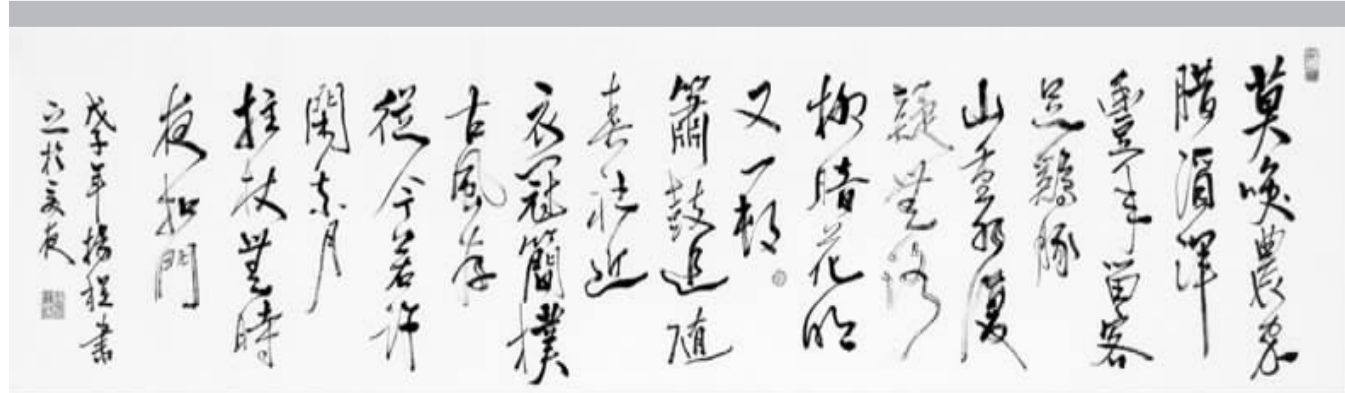 莫咲農家
腊酒渾
豐年留客
足鷄豚
山重水複
疑無路
柳暗花明
又一邨
簫鼓追隨
春社近
衣冠簡樸
古風存
從今若許
閑乘月
拄杖無時
夜扣門
戊子年楊程書
之於亥夜